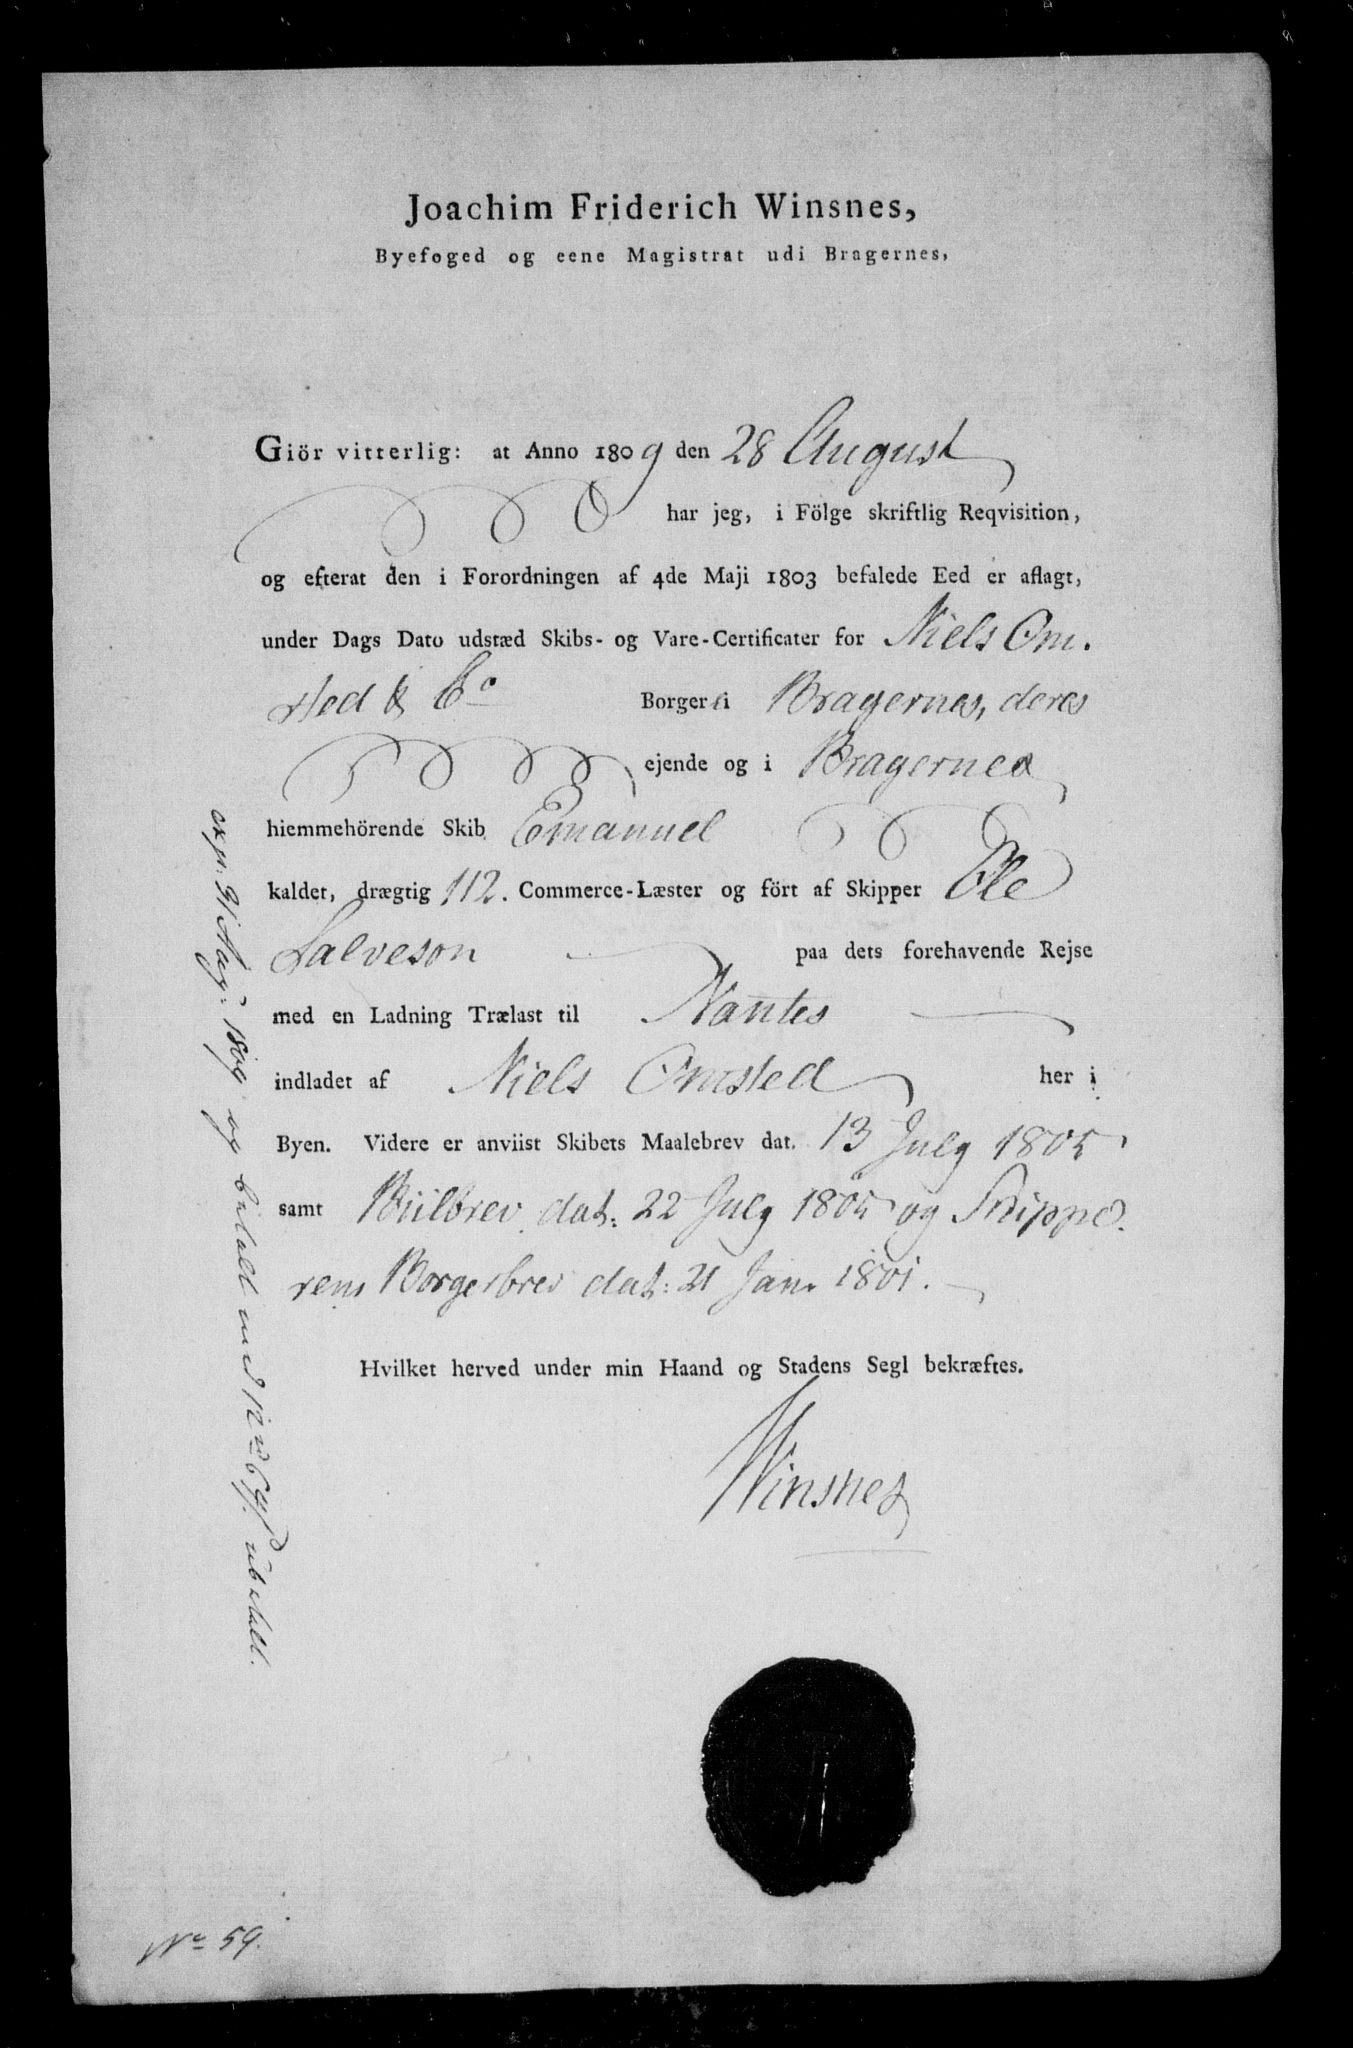 Joachim Friderich Winsnes,
Byefoged og eene Magistrat udi Bragernes,
Giör vitterlig: at Anno 1809 den 28 August
har jeg, i Fölge skriftlig Reqvisition,
og efterat den i Forordningen af 4de Maji 1803 befalede Eed er aflagt,
under Dags Dato udstæd Skibs- og Vare-Certificater for Niels Om.
sted & Co Borgere i Bragernes, deres
ejende og i Bragernes
hiemmehörende Skib Emanuel
kaldet, drægtig 112. Commerce-Læster og fört af Skipper Ole
Salveson paa dets forehavende Rejse
med en Ladning Trælast til Nantes
indladet af Niels Omsted her i
Byen. Videre er anviist Skibets Maalebrev dat. 13 July 1805
samt Biilbrev dat: 22 July 1805 og Skippe.
rens Borgerbrev dat: 21 Jan. 1801.
Hvilket herved under min Haand og Stadens Segl bekræftes.
Winsnes
exp: 31 Aug: 1809 og betalt med 12
No 59.